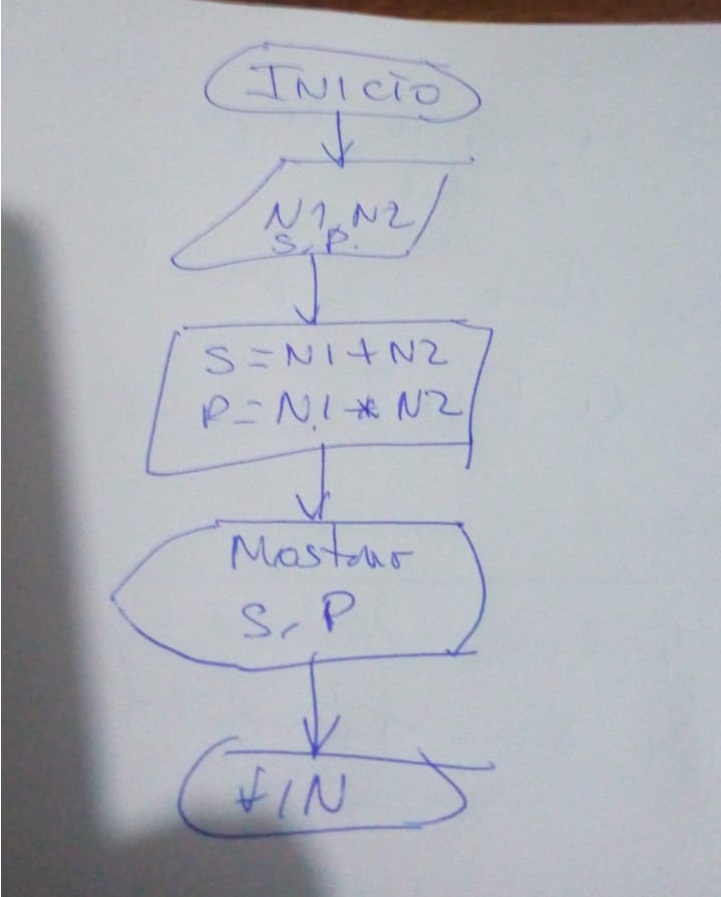 INICIO
N1, N2
S, P.
S=N1+N2
P=N.1*N2
Mostrar
S, P
FIN